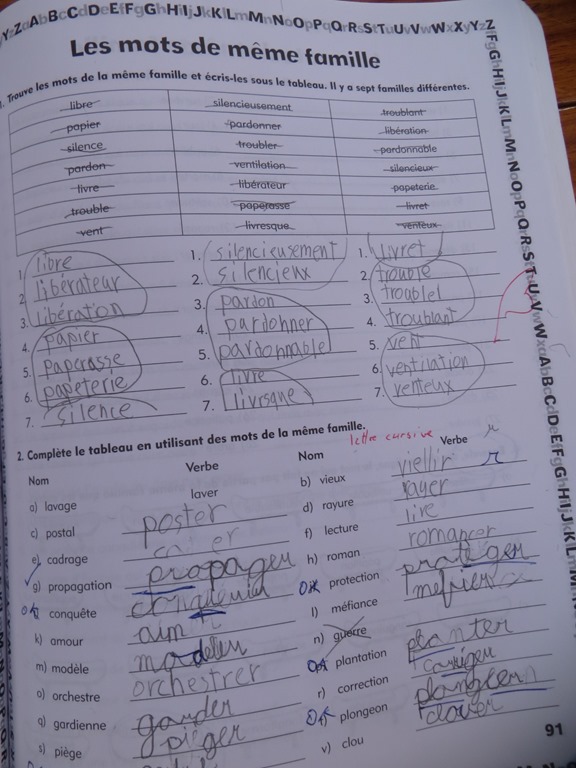 YyZzAaBbCcDdEeFfGgHhIiJjKkLlMmNnOoPpQqRrSsTtUuVvWwXxYyZz
Les mots de même famille
1. Trouve les mots de la même famille et écris-les sous le tableau. Il y a sept familles différentes.
libre silencieusement troublant
papier pardonner libération
silence troubler pardonnable
pardon ventilation silencieux
livre libérateur papeterie
trouble paperasse livret
vent livresque venteux
1. libre 1. silencieusement 1. livret
2. libérateur 2. silencieux 2. trouble
3. libération 3. pardon 3. troublel
4. papier 4. pardonner 4. troublant
5. paperasse 5. pardonnable 5. vent
6. papeterie 6. livre 6. ventilation
7. silence 7. livrsque 7. venteux
2. Complète le tableau en utilisant des mots de la même famille.
lettre cursive
Nom Verbe Nom Verbe
a) lavage laver b) vieux viellir
c) postal poster d) rayure rayer
e) cadrage f) lecture lire
g) propagation propager h) roman romancer
conquête protection protéger
k) amour l) méfiance mefier
m) modèle n) guerre
o) orchestre orchestrer plantation planter
q) gardienne garder r) correction
s) piège piéger plongeon
v) clou clouer
91